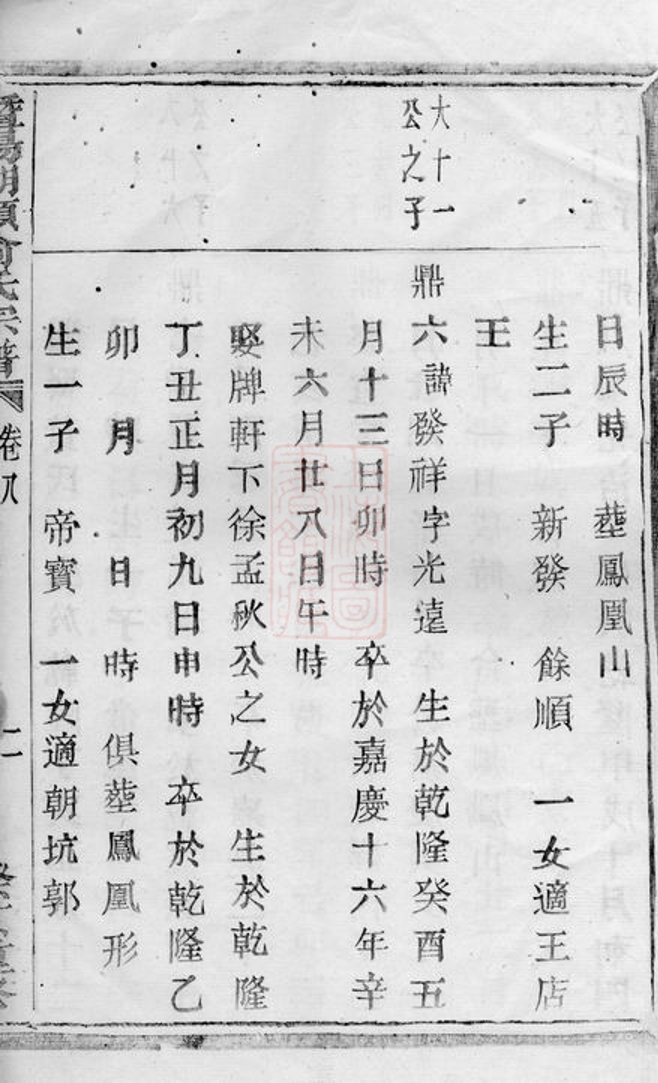 日辰時　塟鳳凰山
生二子　新發　餘順　一女適王店
王
大十一
公之子
鼎六諱發祥字光遠　生於乾隆癸酉五
月十三日卯時　卒於嘉慶十六年辛
未六月廿八日午時
娶牌軒下徐孟秋公之女　生於乾隆
丁丑正月初九日申時　卒於乾隆乙
卯　月　日　時　俱塟鳳凰形
生一子　帝寶　一女適朝坑郭
暨陽湖頭俞氏宗譜　卷八　二